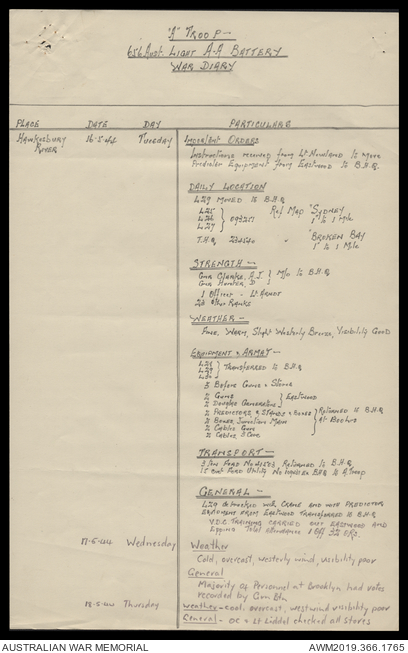 "A" TROOP -
656 Aust. LIGHT A-A BATTERY
WAR DIARY
PLACE DATE DAY PARTICULARS
Hawkesbury 16.5.44 Tuesday
RIVER
ORDERS
Instructions received from Lt Newland to move
Predictor Equipment from Eastwood to B.H.Q.
DAILY LOCATION
L29 MOVED TO B.H.Q.
L25
L26
L27
Ref Map "SYDNEY
1" to 1 mile
T.H.Q. "BROKEN BAY
1" to 1 Mile
STRENGTH -
Gnr Clarke, A.J. } M/O to B.H.Q
Gnr Hunter, D
1 Officer - Lt
Other Ranks
WEATHER -
Fine, Warm, Slight Westerly Breeze, Visibility Good
EQUIPMENT & ARMAT -
TRANSFERRED to B.H.Q
3 Bofors Guns & Stores
2 Guns
2 Douglas Generators } EASTWOOD
2 PREDICTORS & STANDS & Boxes } Returned to B.H.Q
2 Boxes Junction Main
2 Cables Gun
2 Cables
TRANSPORT -
3 Ton Ford Returned to B.H.Q
Ford Utility to A Troop
GENERAL -
L29 WITH CRANE AND WITH PREDICTOR
EQUIPMENT FROM EASTWOOD TRANSFERRED to B.H.Q
V.D.C. TRAINING CARRIED OUT EASTWOOD AND
Epping Total Attendance 1 Off 32 O/Rs.
17.5.44 Wednesday Weather
Cold, overcast, westerly wind, visibility poor
General
Majority of Personnel at Brooklyn had votes
recorded by
18.5.44 Thursday Weather - cool, overcast, west wind visibility poor
General - OC & Lt Liddel checked all stores
AUSTRALIAN WAR MEMORIAL AWM2019.366.1765